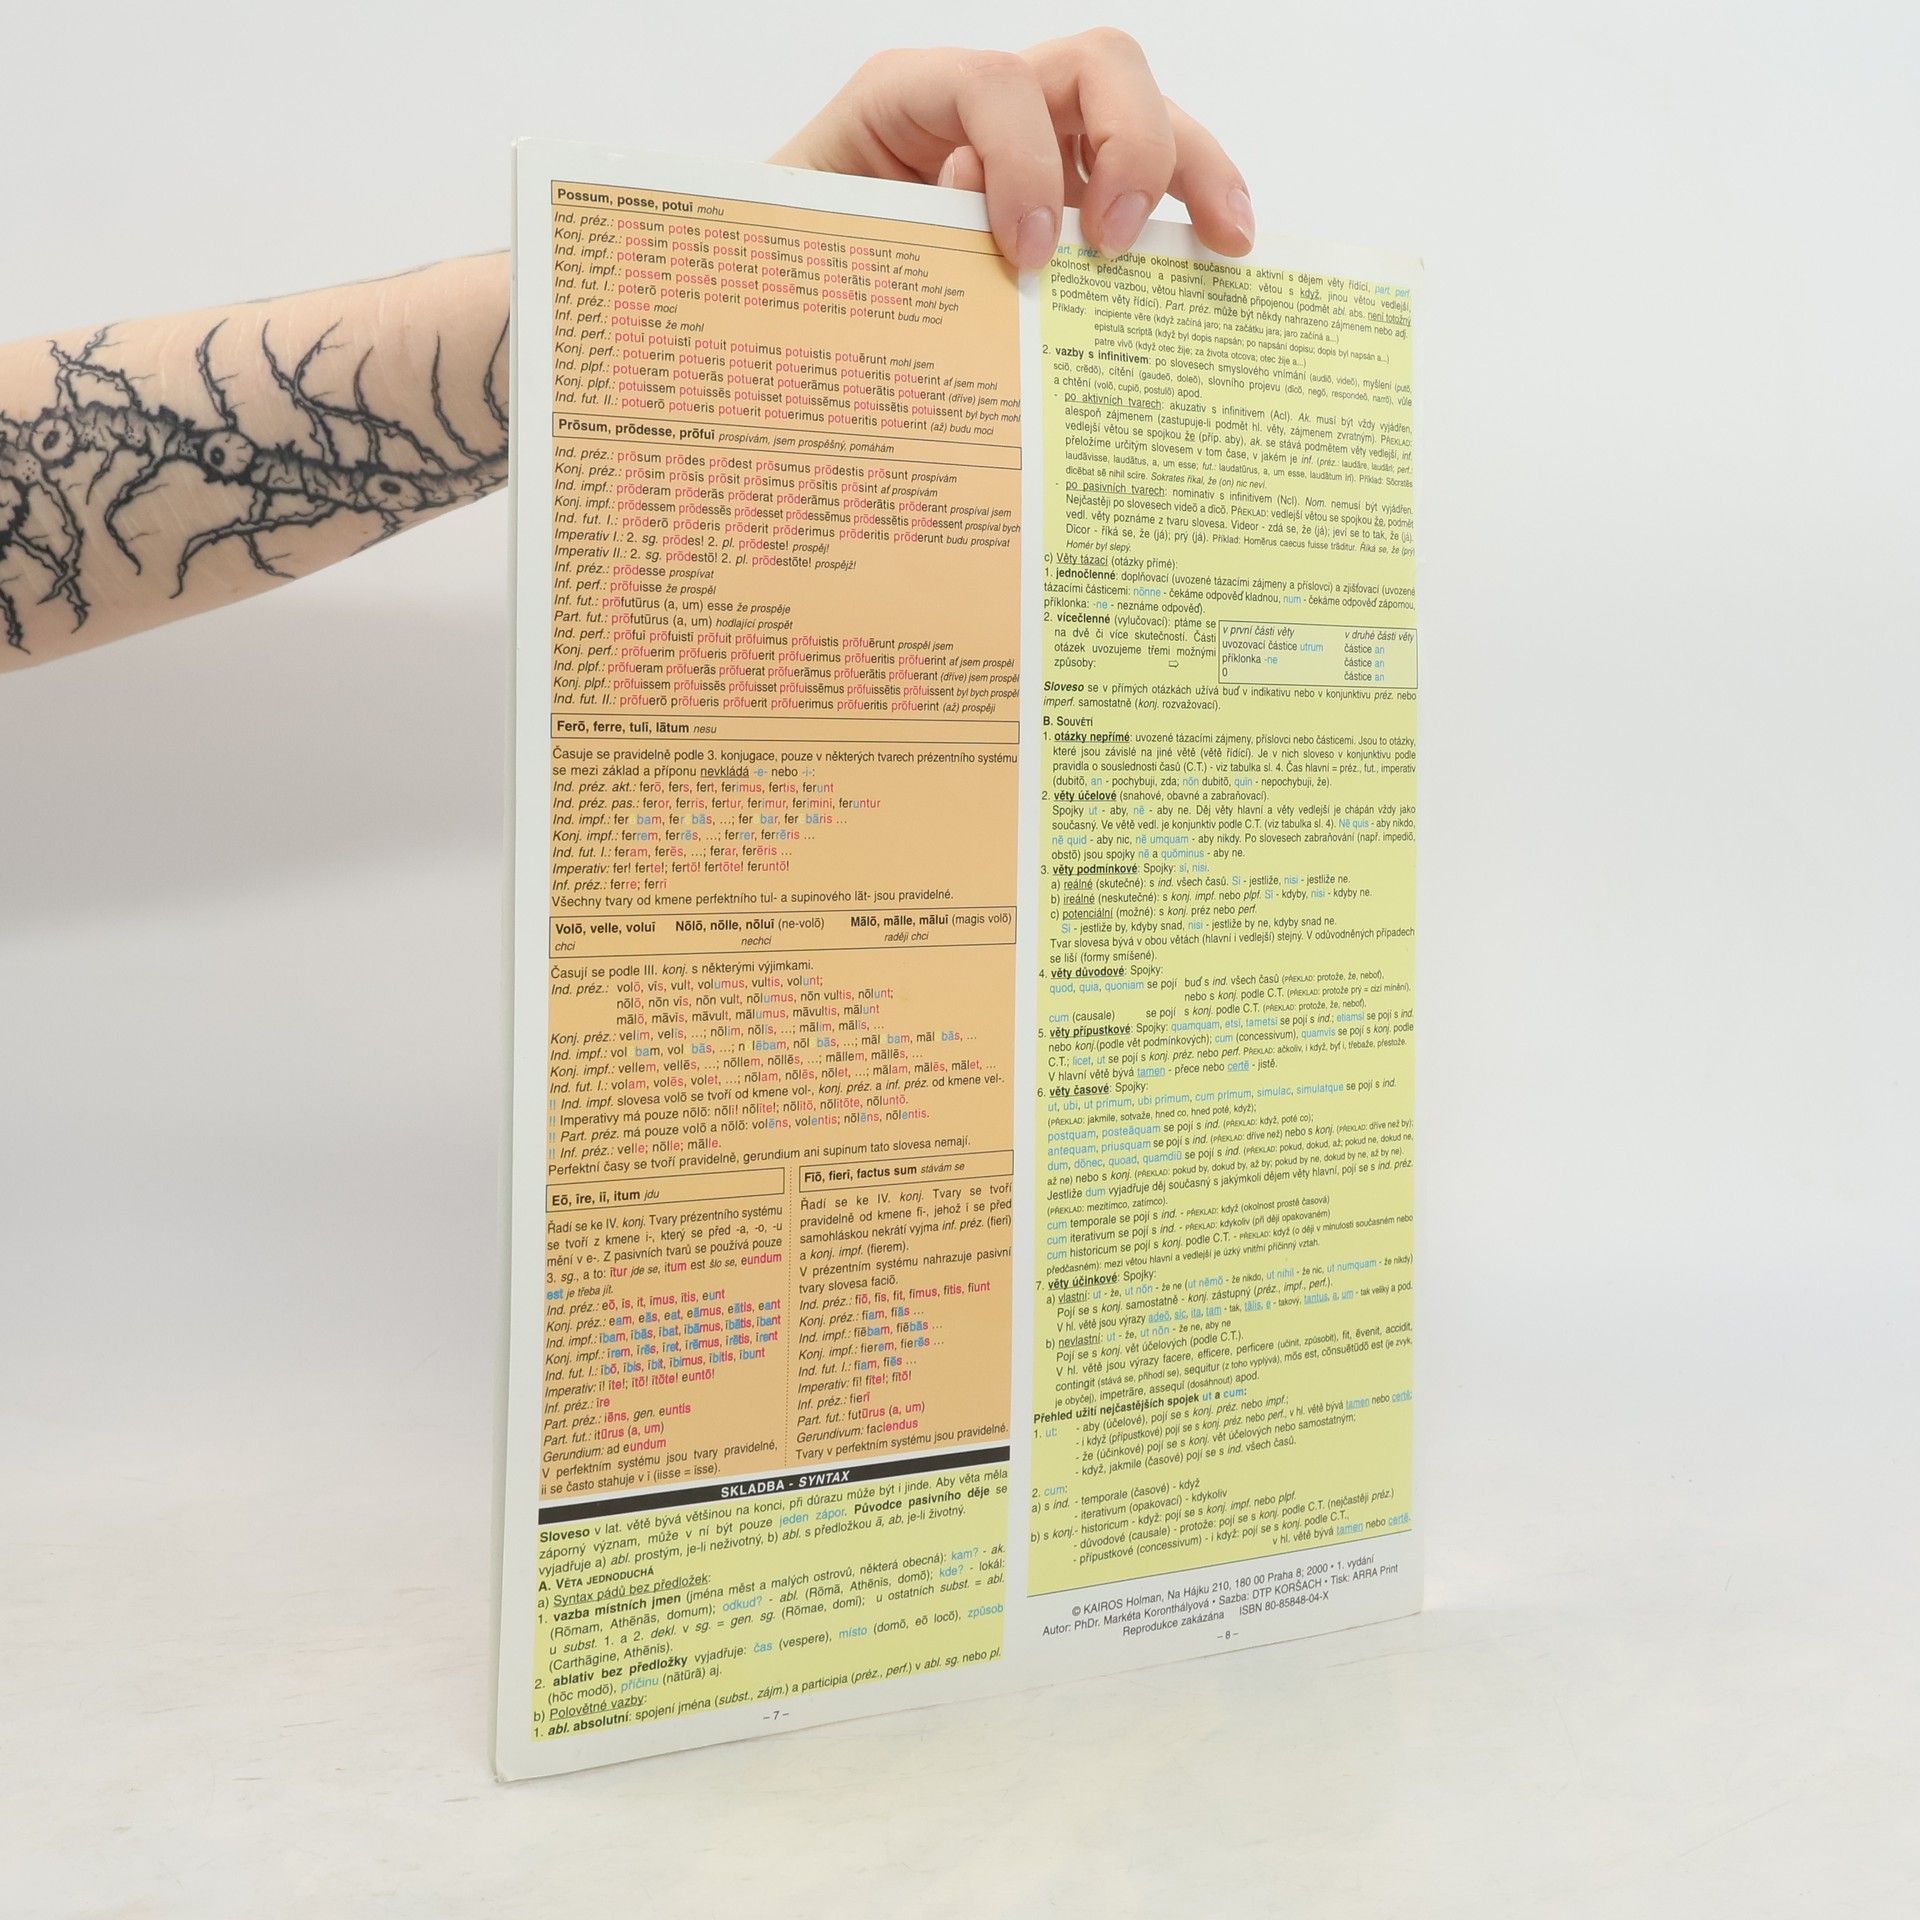 Possum, posse, potuī mohu
Ind. préz.: possum potes potest possumus potestis possunt mohu
Konj. préz.: possim possīs possit possīmus possītis possint ať mohu
Ind. impf.: poteram poterās poterat poterāmus poterātis poterant mohl jsem
Konj. impf.: possem possēs posset possēmus possētis possent mohl bych
Ind. fut. I.: poterō poteris poterit poterimus poteritis poterunt budu moci
Inf. préz.: posse moci
Inf. perf.: potuisse že mohl
Ind. perf.: potuī potuistī potuit potuimus potuistis potuērunt mohl jsem
Konj. perf.: potuerim potueris potuerit potuerimus potueritis potuerint ať jsem mohl
Ind. plpf.: potueram potuerās potuerat potuerāmus potuerātis potuerant (dříve) jsem mohl
Konj. plpf.: potuissem potuissēs potuisset potuissēmus potuissētis potuissent byl bych mohl
Ind. fut. II.: potuerō potueris potuerit potuerimus potueritis potuerint (až) budu moci
Prōsum, prōdesse, prōfuī prospívám, jsem prospěšný, pomáhám
Ind. préz.: prōsum prōdes prōdest prōsumus prōdestis prōsunt prospívám
Konj. préz.: prōsim prōsīs prōsit prōsīmus prōsītis prōsint ať prospívám
Ind. impf.: prōderam prōderās prōderat prōderāmus prōderātis prōderant prospíval jsem
Konj. impf.: prōdessem prōdessēs prōdesset prōdessēmus prōdessētis prōdessent prospíval bych
Ind. fut. I.: prōderō prōderis prōderit prōderimus prōderitis prōderunt budu prospívat
Imperativ I.: 2. sg. prōdes! 2. pl. prōdeste! prospěj!
Imperativ II.: 2. sg. prōdestō! 2. pl. prōdestōte! prospějž!
Inf. préz.: prōdesse prospívat
Inf. perf.: prōfuisse že prospěl
Inf. fut.: prōfutūrus (a, um) esse že prospěje
Part. fut.: prōfutūrus (a, um) hodlající prospět
Ind. perf.: prōfuī prōfuistī prōfuit prōfuimus prōfuistis prōfuērunt prospěl jsem
Konj. perf.: prōfuerim prōfueris prōfuerit prōfuerimus prōfueritis prōfuerint ať jsem prospěl
Ind. plpf.: prōfueram prōfuerās prōfuerat prōfuerāmus prōfuerātis prōfuerant (dříve) jsem prospěl
Konj. plpf.: prōfuissem prōfuissēs prōfuisset prōfuissēmus prōfuissētis prōfuissent byl bych prospěl
Ind. fut. II.: prōfuerō prōfueris prōfuerit prōfuerimus prōfueritis prōfuerint (až) prospěji
Ferō, ferre, tulī, lātum nesu
Časuje se pravidelně podle 3. konjugace, pouze v některých tvarech prézentního systému
se mezi základ a příponu nevkládá -e- nebo -i-:
Ind. préz. akt.: ferō, fers, fert, ferimus, fertis, ferunt
Ind. préz. pas.: feror, ferris, fertur, ferimur, ferimini, feruntur
Ind. impf.: fer bam, fer bās, ...; fer bar, fer bāris ...
Konj. impf.: ferrem, ferrēs, ...; ferrer, ferrēris ...
Ind. fut. I.: feram, ferēs, ...; ferar, ferēris ...
Imperativ: fer! ferte!; fertō! fertōte! feruntō!
Inf. préz.: ferre; ferrī
Všechny tvary od kmene perfektního tul- a supinového lāt- jsou pravidelné.
Volō, velle, voluī Nōlō, nōlle, nōluī (ne-volō) Mālō, mālle, māluī (magis volō)
chci nechci raději chci
Časují se podle III. konj. s některými výjimkami.
Ind. préz.: volō, vīs, vult, volumus, vultis, volunt;
nōlō, nōn vīs, nōn vult, nōlumus, nōn vultis, nōlunt;
mālō, māvīs, māvult, mālumus, māvultis, mālunt
Konj. préz.: velim, velīs, ...; nōlim, nōlīs, ...; mālim, mālīs, ...
Ind. impf.: vol bam, vol bās, ...; n lēbam, nōl bās, ...; māl bam, māl bās, ...
Konj. impf.: vellem, vellēs, ...; nōllem, nōllēs, ...; māllem, māllēs, ...
Ind. fut. I.: volam, volēs, volet, ...; nōlam, nōlēs, nōlet, ...; mālam, mālēs, mālet, ...
!! Ind. impf. slovesa volō se tvoří od kmene vol-, konj. préz. a inf. préz. od kmene vel-.
!! Imperativy má pouze nōlō: nōlī! nōlīte!; nōlītō, nōlītōte, nōluntō.
!! Part. préz. má pouze volō a nōlō: volēns, volentis; nōlēns, nōlentis.
!! Inf. préz.: velle; nōlle; mālle.
Perfektní časy se tvoří pravidelně, gerundium ani supinum tato slovesa nemají.
Eō, īre, iī, itum jdu
Řadí se ke IV. konj. Tvary prézentního systému
se tvoří z kmene i-, který se před -a, -o, -u
mění v e-. Z pasivních tvarů se používá pouze
3. sg., a to: ītur jde se, itum est šlo se, eundum
est je třeba jít.
Ind. préz.: eō, īs, it, īmus, ītis, eunt
Konj. préz.: eam, eās, eat, eāmus, eātis, eant
Ind. impf.: ībam, ībās, ībat, ībāmus, ībātis, ībant
Konj. impf.: īrem, īrēs, īret, īrēmus, īrētis, īrent
Ind. fut. I.: ībō, ībis, ībit, ībimus, ībitis, ībunt
Imperativ: ī! īte!; ītō! ītōte! euntō!
Inf. préz.: īre
Part. préz.: iēns, gen. euntis
Part. fut.: itūrus (a, um)
Gerundium: ad eundum
V perfektním systému jsou tvary pravidelné,
ii se často stahuje v ī (iisse = īsse).
Fīō, fierī, factus sum stávám se
Řadí se ke IV. konj. Tvary se tvoří
pravidelně od kmene fī-, jehož i se před
samohláskou nekrátí vyjma inf. préz. (fierī)
a konj. impf. (fierem).
V prézentním systému nahrazuje pasivní
tvary slovesa faciō.
Ind. préz.: fīō, fīs, fit, fīmus, fītis, fīunt
Konj. préz.: fīam, fīās ...
Ind. impf.: fīēbam, fīēbās ...
Konj. impf.: fierem, fierēs ...
Ind. fut. I.: fīam, fīēs ...
Imperativ: fī! fīte!; fītō!
Inf. préz.: fierī
Part. fut.: futūrus (a, um)
Gerundivum: faciendus
Tvary v perfektním systému jsou pravidelné.
SKLADBA - SYNTAX
Sloveso v lat. větě bývá většinou na konci, při důrazu může být i jinde. Aby věta měla
záporný význam, může v ní být pouze jeden zápor. Původce pasivního děje se
vyjadřuje a) abl. prostým, je-li neživotný, b) abl. s předložkou ā, ab, je-li životný.
A. VĚTA JEDNODUCHÁ
a) Syntax pádů bez předložek:
1. vazba místních jmen (jména měst a malých ostrovů, některá obecná): kam? - ak.
(Rōmam, Athēnās, domum); odkud? - abl. (Rōmā, Athēnīs, domō); kde? - lokál:
u subst. 1. a 2. dekl. v sg. = gen. sg. (Rōmae, domī); u ostatních subst. = abl.
(Carthāgine, Athēnīs).
2. ablativ bez předložky vyjadřuje: čas (vespere), místo (domō, eō locō), způsob
(hōc modō), příčinu (nātūrā) aj.
b) Polovětné vazby:
1. abl. absolutní: spojení jména (subst., zájm.) a participia (préz., perf.) v abl. sg. nebo pl.
– 7 –
art. préz. vyjadřuje okolnost současnou a aktivní s dějem věty řídící, part. perf.
okolnost předčasnou a pasivní. PŘEKLAD: větou s když, jinou větou vedlejší,
předložkovou vazbou, větou hlavní souřadně připojenou (podmět abl. abs. není totožný
s podmětem věty řídící). Part. préz. může být někdy nahrazeno zájmenem nebo adj.
Příklady: incipiente vēre (když začíná jaro; na začátku jara; jaro začíná a...)
epistulā scrīptā (když byl dopis napsán; po napsání dopisu; dopis byl napsán a...)
patre vīvō (když otec žije; za života otcova; otec žije a...)
2. vazby s infinitivem: po slovesech smyslového vnímání (audiō, videō), myšlení (putō,
sciō, crēdō), cítění (gaudeō, doleō), slovního projevu (dīcō, negō, respondeō, narrō), vůle
a chtění (volō, cupiō, postulō) apod.
- po aktivních tvarech: akuzativ s infinitivem (AcI). Ak. musí být vždy vyjádřen,
alespoň zájmenem (zastupuje-li podmět hl. věty, zájmenem zvratným). PŘEKLAD:
vedlejší větou se spojkou že (příp. aby), ak. se stává podmětem věty vedlejší, inf.
přeložíme určitým slovesem v tom čase, v jakém je inf. (préz.: laudāre, laudārī; perf.:
laudāvisse, laudātus, a, um esse; fut.: laudatūrus, a, um esse, laudātum īrī). Příklad: Sōcratēs
dīcēbat sē nihil scīre. Sokrates říkal, že (on) nic neví.
- po pasivních tvarech: nominativ s infinitivem (NcI). Nom. nemusí být vyjádřen.
Nejčastěji po slovesech videō a dīcō. PŘEKLAD: vedlejší větou se spojkou že, podmět
vedl. věty poznáme z tvaru slovesa. Videor - zdá se, že (já); jeví se to tak, že (já).
Dīcor - říká se, že (já); prý (já). Příklad: Homērus caecus fuisse trāditur. Říká se, že (prý)
Homér byl slepý.
c) Věty tázací (otázky přímé):
1. jednočlenné: doplňovací (uvozené tázacími zájmeny a příslovci) a zjišťovací (uvozené
tázacími částicemi: nōnne - čekáme odpověď kladnou, num - čekáme odpověď zápornou,
příklonka: -ne - neznáme odpověď).
2. vícečlenné (vylučovací): ptáme se
na dvě či více skutečností. Části
otázek uvozujeme třemi možnými
způsoby: ⇨
v první části věty v druhé části věty
uvozovací částice utrum částice an
příklonka -ne částice an
0 částice an
Sloveso se v přímých otázkách užívá buď v indikativu nebo v konjunktivu préz. nebo
imperf. samostatně (konj. rozvažovací).
B. SOUVĚTÍ
1. otázky nepřímé: uvozené tázacími zájmeny, příslovci nebo částicemi. Jsou to otázky,
které jsou závislé na jiné větě (větě řídící). Je v nich sloveso v konjunktivu podle
pravidla o souslednosti časů (C.T.) - viz tabulka sl. 4. Čas hlavní = préz., fut., imperativ
(dubitō, an - pochybuji, zda; nōn dubitō, quīn - nepochybuji, že).
2. věty účelové (snahové, obavné a zabraňovací).
Spojky ut - aby, nē - aby ne. Děj věty hlavní a věty vedlejší je chápán vždy jako
současný. Ve větě vedl. je konjunktiv podle C.T. (viz tabulka sl. 4). Nē quis - aby nikdo,
nē quid - aby nic, nē umquam - aby nikdy. Po slovesech zabraňování (např. impediō,
obstō) jsou spojky nē a quōminus - aby ne.
3. věty podmínkové: Spojky: sī, nisi.
a) reálné (skutečné): s ind. všech časů. Sī - jestliže, nisi - jestliže ne.
b) ireálné (neskutečné): s konj. impf. nebo plpf. Sī - kdyby, nisi - kdyby ne.
c) potenciální (možné): s konj. préz nebo perf.
Sī - jestliže by, kdyby snad, nisi - jestliže by ne, kdyby snad ne.
Tvar slovesa bývá v obou větách (hlavní i vedlejší) stejný. V odůvodněných případech
se liší (formy smíšené).
4. věty důvodové: Spojky:
quod, quia, quoniam se pojí buď s ind. všech časů (PŘEKLAD: protože, že, neboť),
nebo s konj. podle C.T. (PŘEKLAD: protože prý = cizí mínění),
cum (causale) se pojí s konj. podle C.T. (PŘEKLAD: protože, že, neboť),
5. věty přípustkové: Spojky: quamquam, etsī, tametsī se pojí s ind.; etiamsī se pojí s ind.
nebo konj.(podle vět podmínkových); cum (concessivum), quamvīs se pojí s konj. podle
C.T.; licet, ut se pojí s konj. préz. nebo perf. PŘEKLAD: ačkoliv, i když, byť i, třebaže, přestože.
V hlavní větě bývá tamen - přece nebo certē - jistě.
6. věty časové: Spojky:
ut, ubi, ut prīmum, ubi prīmum, cum prīmum, simulac, simulatque se pojí s ind.
(PŘEKLAD: jakmile, sotvaže, hned co, hned poté, když);
postquam, posteāquam se pojí s ind. (PŘEKLAD: když, poté co);
antequam, priusquam se pojí s ind. (PŘEKLAD: dříve než) nebo s konj. (PŘEKLAD: dříve než by);
dum, dōnec, quoad, quamdiū se pojí s ind. (PŘEKLAD: pokud, dokud, až; pokud ne, dokud ne,
až ne) nebo s konj. (PŘEKLAD: pokud by, dokud by, až by; pokud by ne, dokud by ne, až by ne).
Jestliže dum vyjadřuje děj současný s jakýmkoli dějem věty hlavní, pojí se s ind. préz.
(PŘEKLAD: mezitímco, zatímco).
cum temporale se pojí s ind. - PŘEKLAD: když (okolnost prostě časová)
cum iterativum se pojí s ind. - PŘEKLAD: kdykoliv (při ději opakovaném)
cum historicum se pojí s konj. podle C.T. - PŘEKLAD: když (o ději v minulosti současném nebo
předčasném): mezi větou hlavní a vedlejší je úzký vnitřní příčinný vztah.
7. věty účinkové: Spojky:
a) vlastní: ut - že, ut nōn - že ne (ut nēmō - že nikdo, ut nihil - že nic, ut numquam - že nikdy)
Pojí se s konj. samostatně - konj. zástupný (préz., impf., perf.).
V hl. větě jsou výrazy adeō, sīc, ita, tam - tak, tālis, e - takový, tantus, a, um - tak veliký a pod.
b) nevlastní: ut - že, ut nōn - že ne, aby ne
Pojí se s konj. vět účelových (podle C.T.).
V hl. větě jsou výrazy facere, efficere, perficere (učinit, způsobit), fit, ēvenit, accidit,
contingit (stává se, přihodí se), sequitur (z toho vyplývá), mōs est, cōnsuētūdō est (je zvyk,
je obyčej), impetrāre, assequī (dosáhnout) apod.
Přehled užití nejčastějších spojek ut a cum:
1. ut: - aby (účelové), pojí se s konj. préz. nebo impf.;
- i když (přípustkové) pojí se s konj. préz. nebo perf., v hl. větě bývá tamen nebo certē;
- že (účinkové) pojí se s konj. vět účelových nebo samostatným;
- když, jakmile (časové) pojí se s ind. všech časů.
2. cum:
a) s ind. - temporale (časové) - když
- iterativum (opakovací) - kdykoliv
b) s konj.- historicum - když: pojí se s konj. impf. nebo plpf.
- důvodové (causale) - protože: pojí se s konj. podle C.T. (nejčastěji préz.)
- přípustkové (concessivum) - i když: pojí se s konj. podle C.T.,
v hl. větě bývá tamen nebo certē.
© KAIROS Holman, Na Hájku 210, 180 00 Praha 8; 2000 • 1. vydání
Autor: PhDr. Markéta Koronthályová • Sazba: DTP KORŠACH • Tisk: ARRA Print
Reprodukce zakázána ISBN 80-85848-04-X
– 8 –